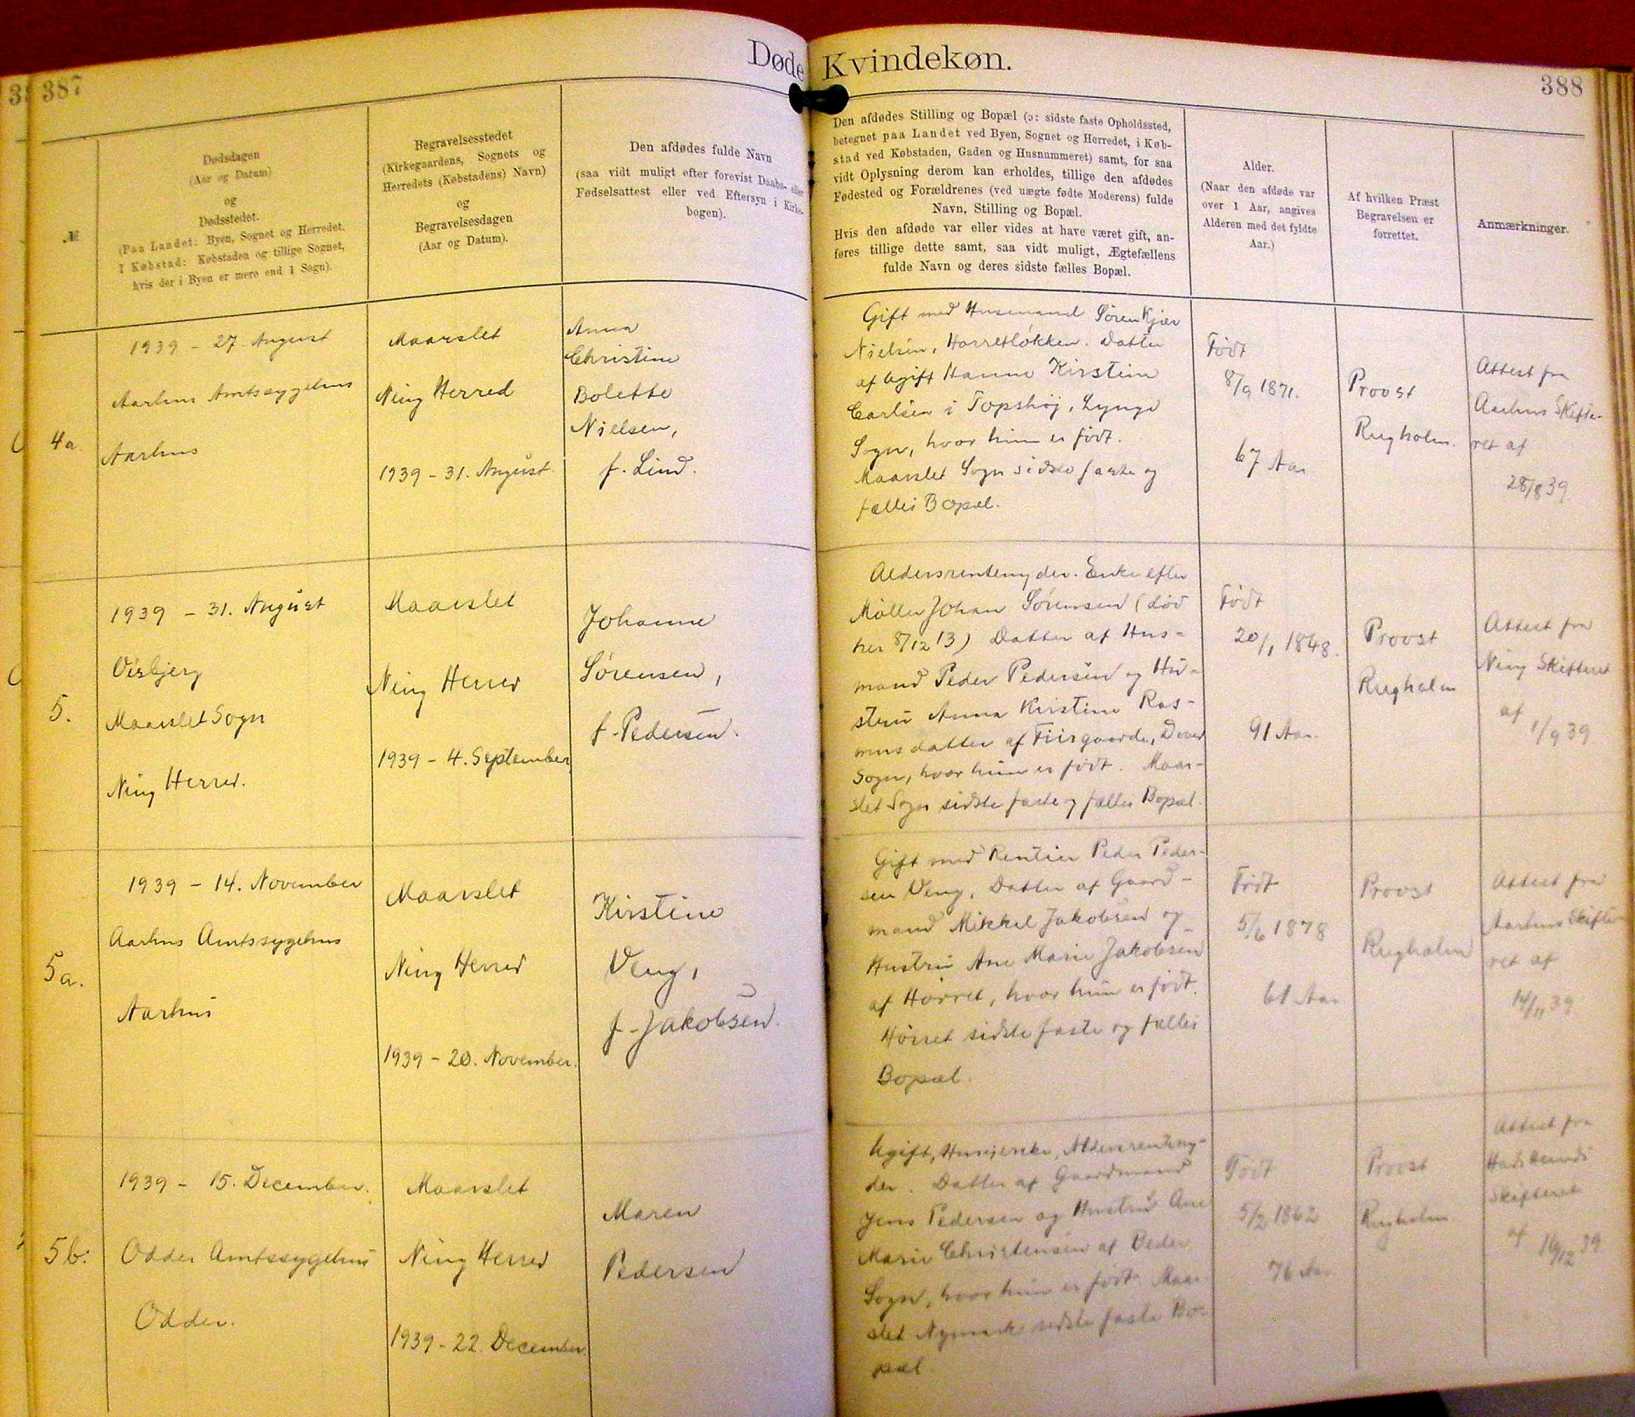 Døde Kvindekøn.
387
388
№
Dødsdagen
(Aar og Datum)
og
Dødsstedet.
(Paa Landet: Byen, Sognet og Herredet.
I Købstad: Købstaden og tillige Sognet,
hvis der i Byen er mere end 1 Sogn).
Begravelsesstedet
(Kirkegaardens, Sognets og
Herredets (Købstadens) Navn)
og
Begravelsesdagen
(Aar og Datum).
Den afdødes fulde Navn
(saa vidt muligt efter forevist Daabs- eller
Fødselsattest eller ved Eftersyn i Kirke-
bogen).
Den afdødes Stilling og Bopæl (ɔ: sidste faste Opholdssted,
betegnet paa Landet ved Byen, Sognet og Herredet, i Køb-
stad ved Købstaden, Gaden og Husnummeret) samt, for saa
vidt Oplysning derom kan erholdes, tillige den afdødes
Fødested og Forældrenes (ved uægte fødte Moderens) fulde
Navn, Stilling og Bopæl.
Hvis den afdøde var eller vides at have været gift, an-
føres tillige dette samt, saa vidt muligt, Ægtefællens
fulde Navn og deres sidste fælles Bopæl.
Alder.
(Naar den afdøde var
over 1 Aar, angives
Alderen med det fyldte
Aar.)
Af hvilken Præst
Begravelsen er
forrettet.
Anmærkninger.
4a.
1939 - 27. August
Aarhus Amtssygehus
Aarhus
Maarslet
Ning Herred
1939 - 31. August
Anna
Christine
Bolette
Nielsen,
f. Lind.
Gift med Husmand Søren Kjær
Nielsen, Hørretløkken. Datter
af Ugift Hanne Kirstine
Carlsen i Topshøj, Lynge
Sogn, hvor hun er født.
Maarslet Sogn sidste faste og
fælles Bopæl.
Født
8/9 1871.
67 Aar
Provst
Rugholm.
Attest fra
Aarhus Skifte-
ret af
28/8 39.
5.
1939 - 31. August
Visbjerg
Maarslet Sogn
Ning Herred.
Maarslet
Ning Herred
1939 - 4. September
Johanne
Sørensen,
f. Pedersen.
Aldersrentenyder. Enke efter
Møller Johan Sørensen (død
her 8/12 13) Datter af Hus-
mand Peder Pedersen og Hu-
stru Anna Kirstine Ras-
musdatter af Fiirgaarde, Dover
Sogn, hvor hun er født. Maar-
slet Sogn sidste faste og fælles Bopæl.
Født
20/1 1848.
91 Aar.
Provst
Rugholm
Attest fra
Ning Skifteret
af
1/9 39
5a.
1939 - 14. November
Aarhus Amtssygehus
Aarhus
Maarslet
Ning Herred
1939 - 20. November.
Kirstine
Veng,
f. Jakobsen.
Gift med Rentier Peder Peder-
sen Veng, Datter af Gaard-
mand Mikkel Jakobsen og
Hustru Ane Marie Jakobsen
af Hørret, hvor hun er født.
Hørret sidste faste og fælles
Bopæl.
Født
5/6 1878
61 Aar
Provst
Rugholm
Attest fra
Aarhus Skifte-
ret af
14/11 39
5b.
1939 - 15. December.
Odder Amtssygehus
Odder.
Maarslet
Ning Herred
1939 - 22. December.
Maren
Pedersen
Ugift, Husejerske, Aldersrenteny-
der. Datter af Gaardmand
Jens Pedersen og Hustru Ane
Marie Christensen af Beder
Sogn, hvor hun er født. Maar-
slet Nymark sidste faste Bo-
pæl.
Født
5/2 1862
76 Aar
Provst
Rugholm
Attest fra
Skifteret
af 16/12 39